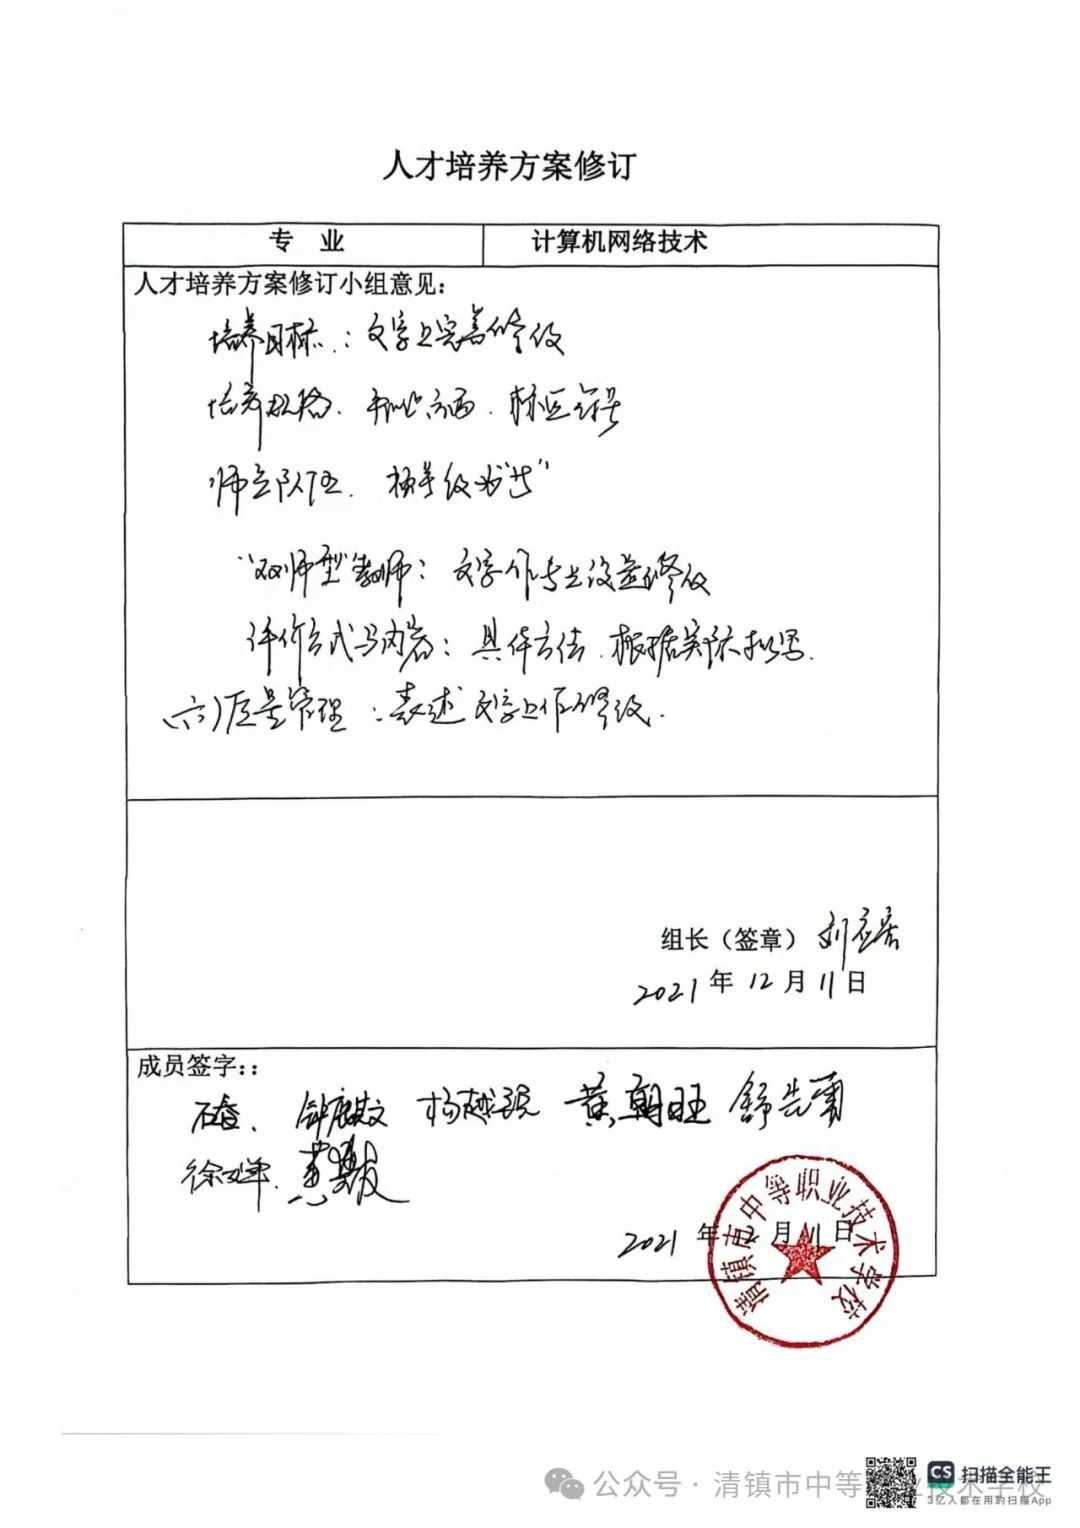 人才培养方案修订
专 业 计算机网络技术
人才培养方案修订小组意见：
培养目标：文字上完善修改
培养规格、和 方面、标区
师资队伍、
"双师型"教师：文字作专业设置修改
评价方式与内容：具体方法、根据实际拟写.
(六)质量管理：表述文字上作修改.
组长（签章）刘
2021年12月11日
成员签字：:
钟麒文 杨越 黄朝旺 舒先勇
徐 黄
2021年12月11日
清镇市中等职业技术学校
公众号·清镇市中等职业技术学校
CS 扫描全能王
3亿人都在用的扫描App